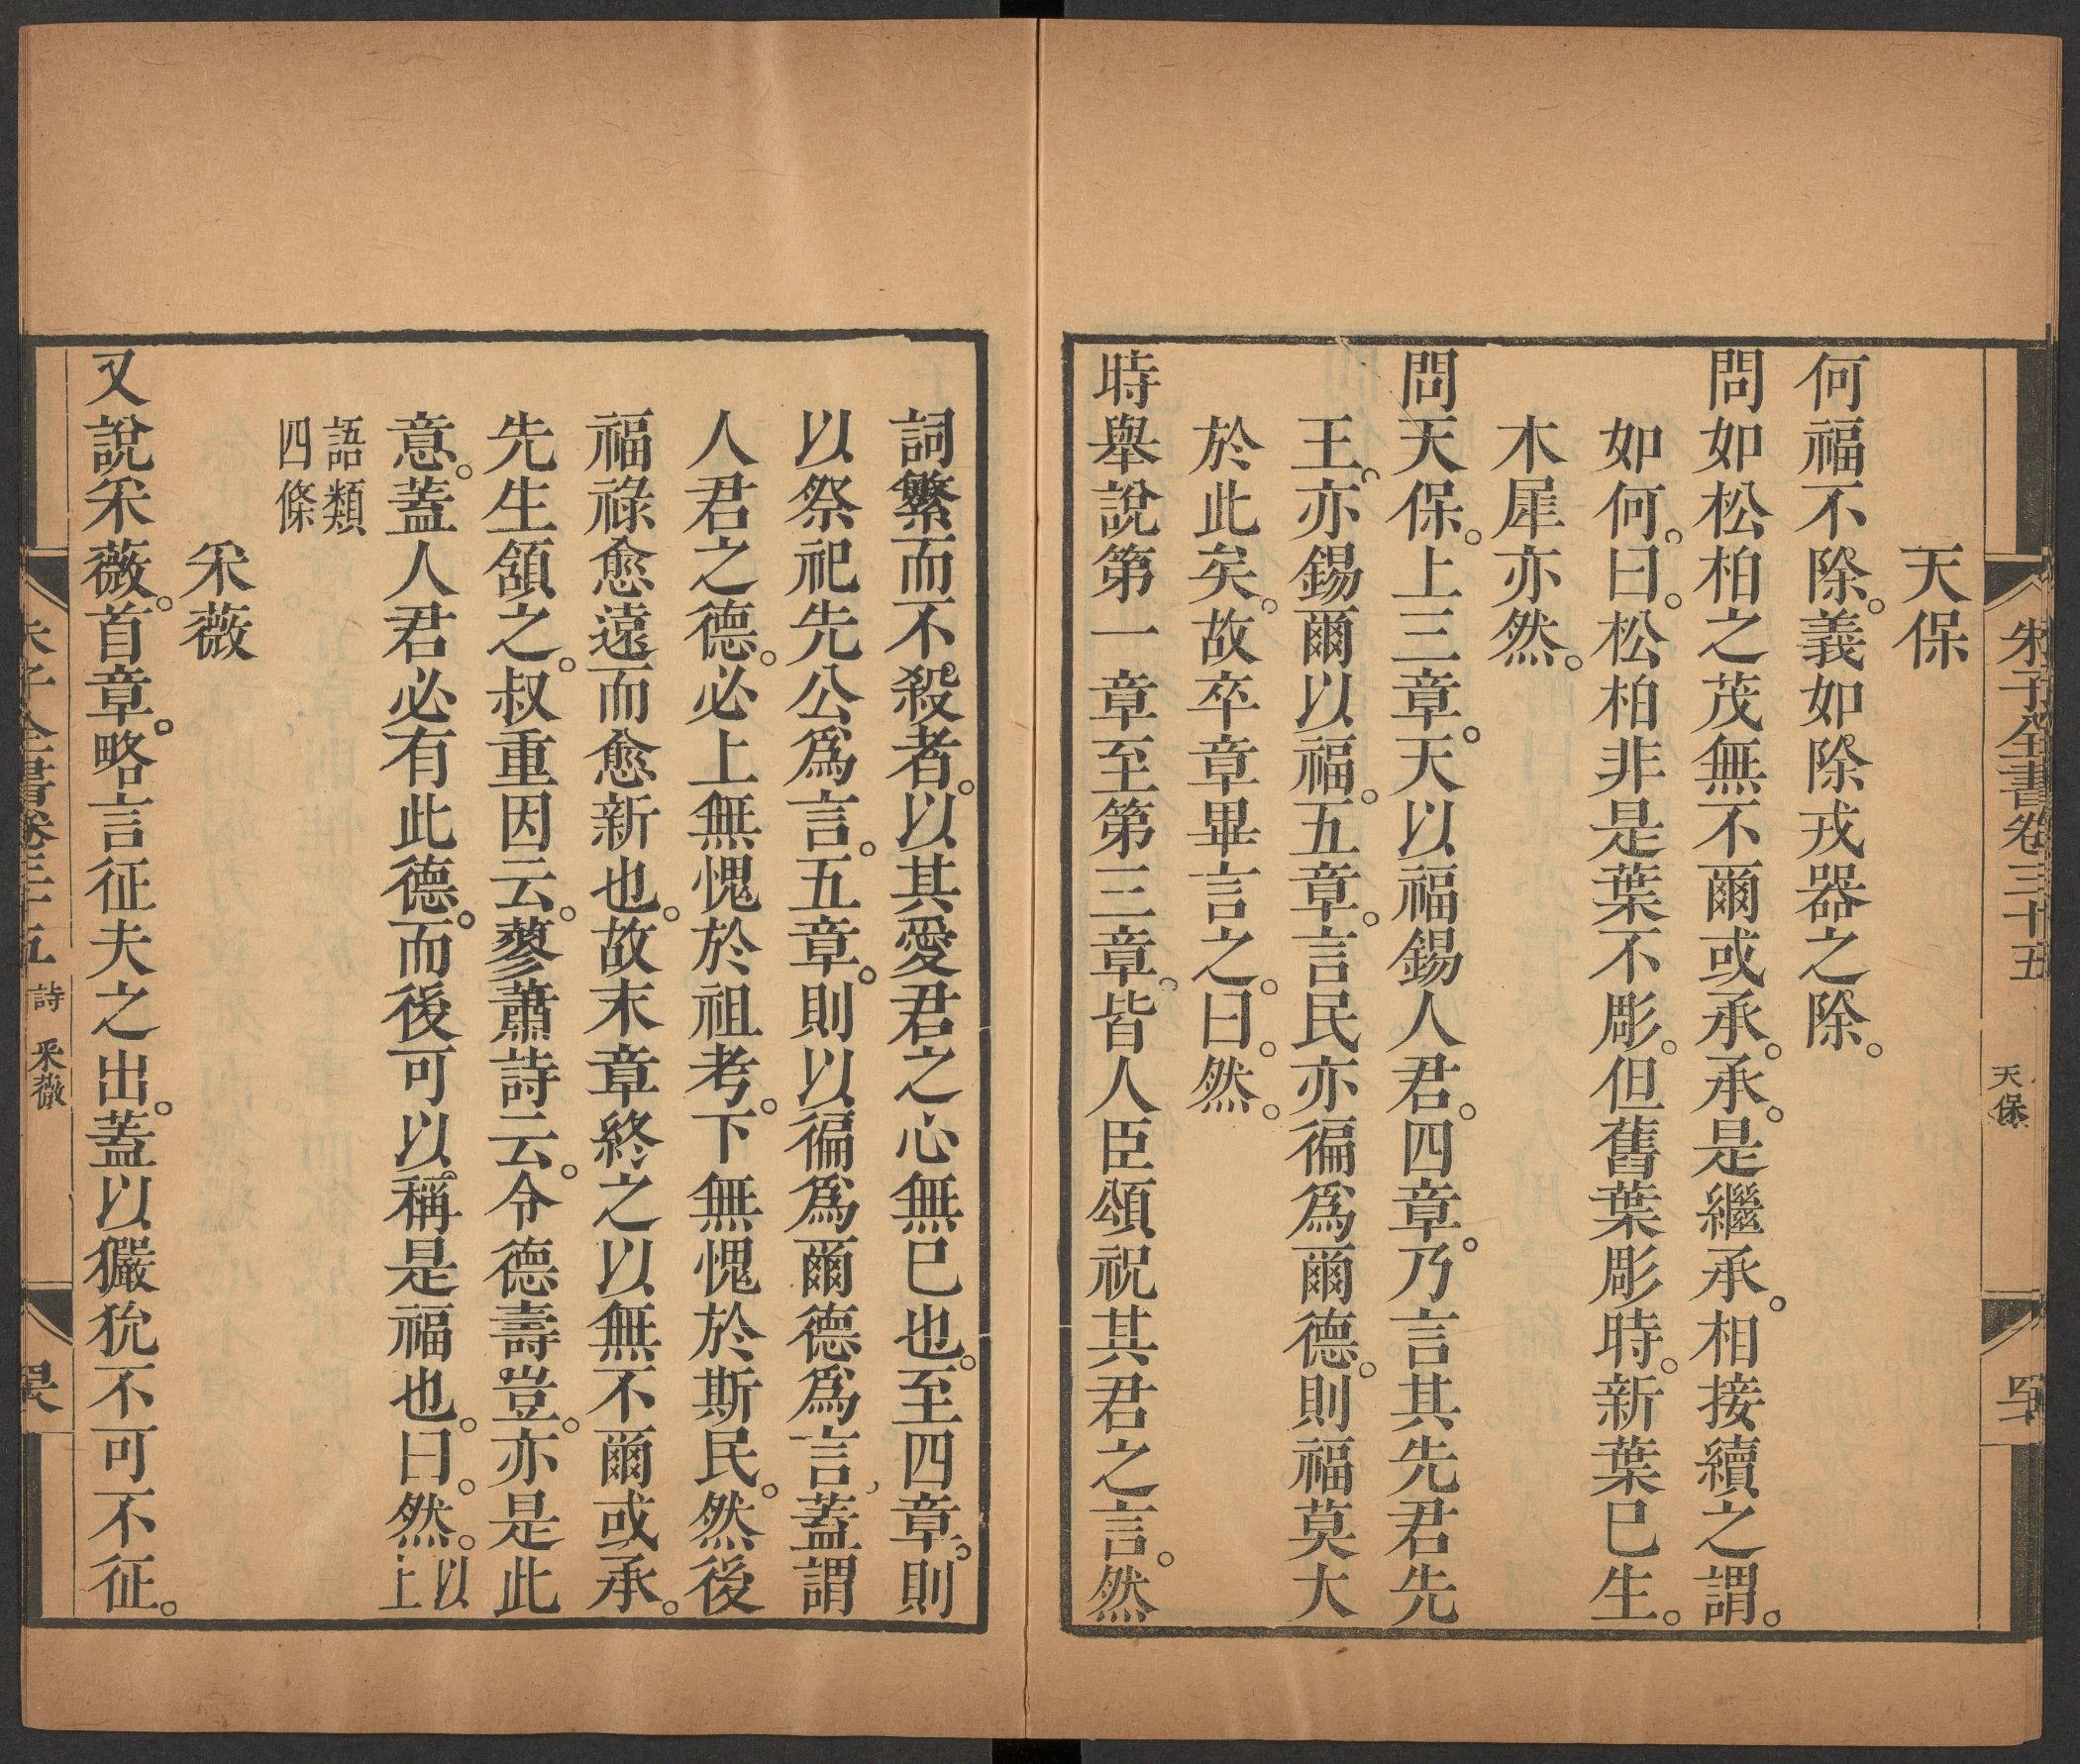 朱子全書卷三十五
天保
天保
何福不除。義如除戎器之除。
問如松柏之茂無不爾或承。承。是繼承。相接續之謂。
如何。曰。松柏非是葉不彫。但舊葉彫時。新葉已生。
木犀亦然。
問天保。上三章。天以福錫人君。四章。乃言其先君先
王。亦錫爾以福。五章。言民亦徧爲爾德。則福莫大
於此矣。故卒章畢言之。曰。然。
時舉說第一章至第三章。皆人臣頌祝其君之言。然
詞繁而不殺者。以其愛君之心無已也。至四章。則
以祭祀先公爲言。五章。則以徧爲爾德爲言。蓋謂
人君之德。必上無愧於祖考。下無愧於斯民。然後
福祿愈遠而愈新也。故末章終之以無不爾或承。
先生頷之。叔重因云。蓼蕭詩云。令德壽豈。亦是此
意。蓋人君必有此德。而後可以稱是福也。曰。然。以上
語類
四條
采薇
又說采薇。首章。略言征夫之出。蓋以玁狁不可不征。
朱子全書卷三十五
詩 采薇